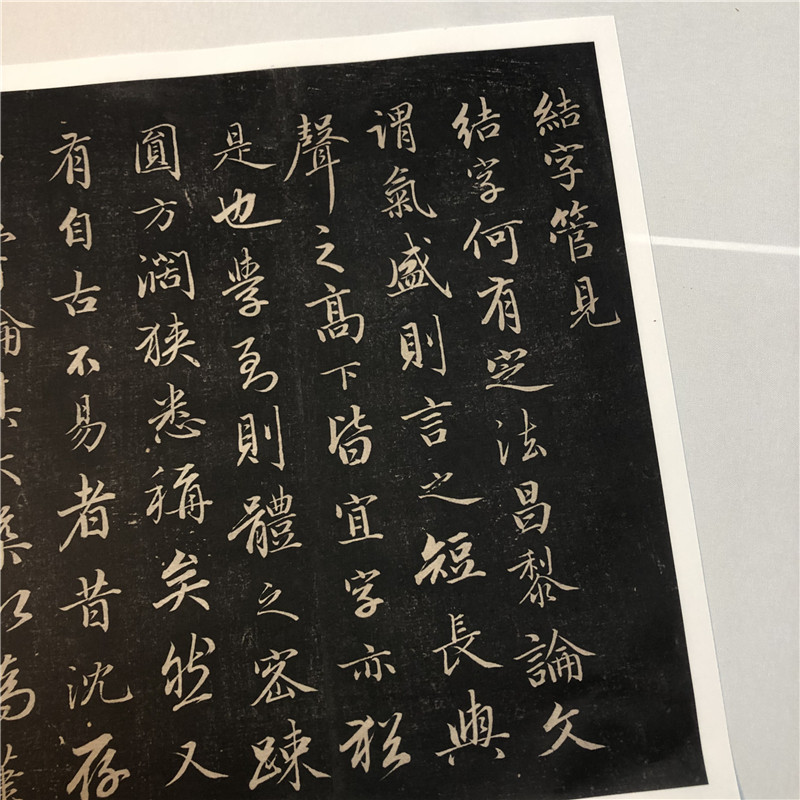 結字管見
結字何有定法昌黎論文
謂氣盛則言之短長與
聲之髙下皆宜字亦猶
是也學到則體之密疎
圓方濶狹悉稱矣然又
有自古不易者昔沈存